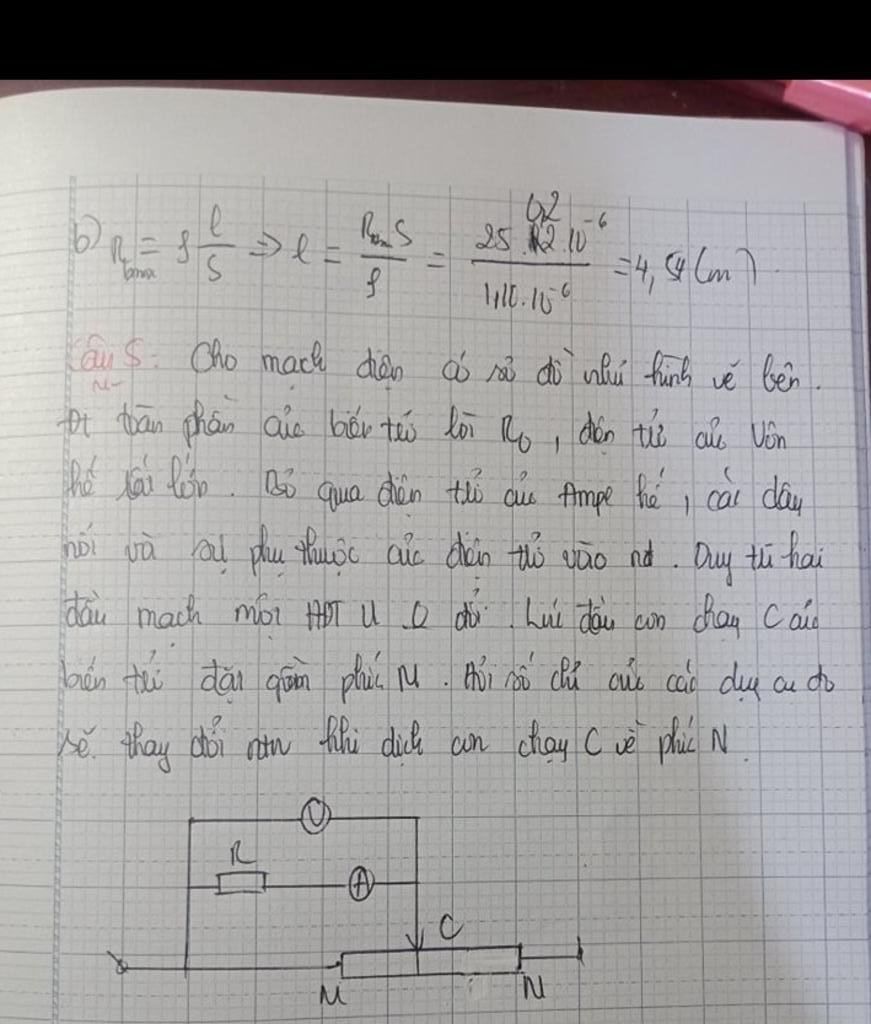 b) Rbmax = ρ l/S ⇒ l = Rbm S/ρ = 25.0,2.10⁻⁶/1,10.10⁻⁶ = 4,54 (m).
Câu 5: Cho mạch điện có sơ đồ như hình vẽ bên.
Đt toàn phần của biến trở lời R₀, điện trở của Vôn
kế rất lớn. Bỏ qua điện trở của Ampe kế, các dây
nối và sự phụ thuộc của điện trở vào nđ. Duy trì hai
đầu mạch một HĐT U đổi. Lúc đầu con chạy C của
biến trở đặt gần phía M. Hỏi số chỉ của các dụng cụ đo
sẽ thay đổi ntn khi dịch con chạy C về phía N.
V
R
A
C
M N